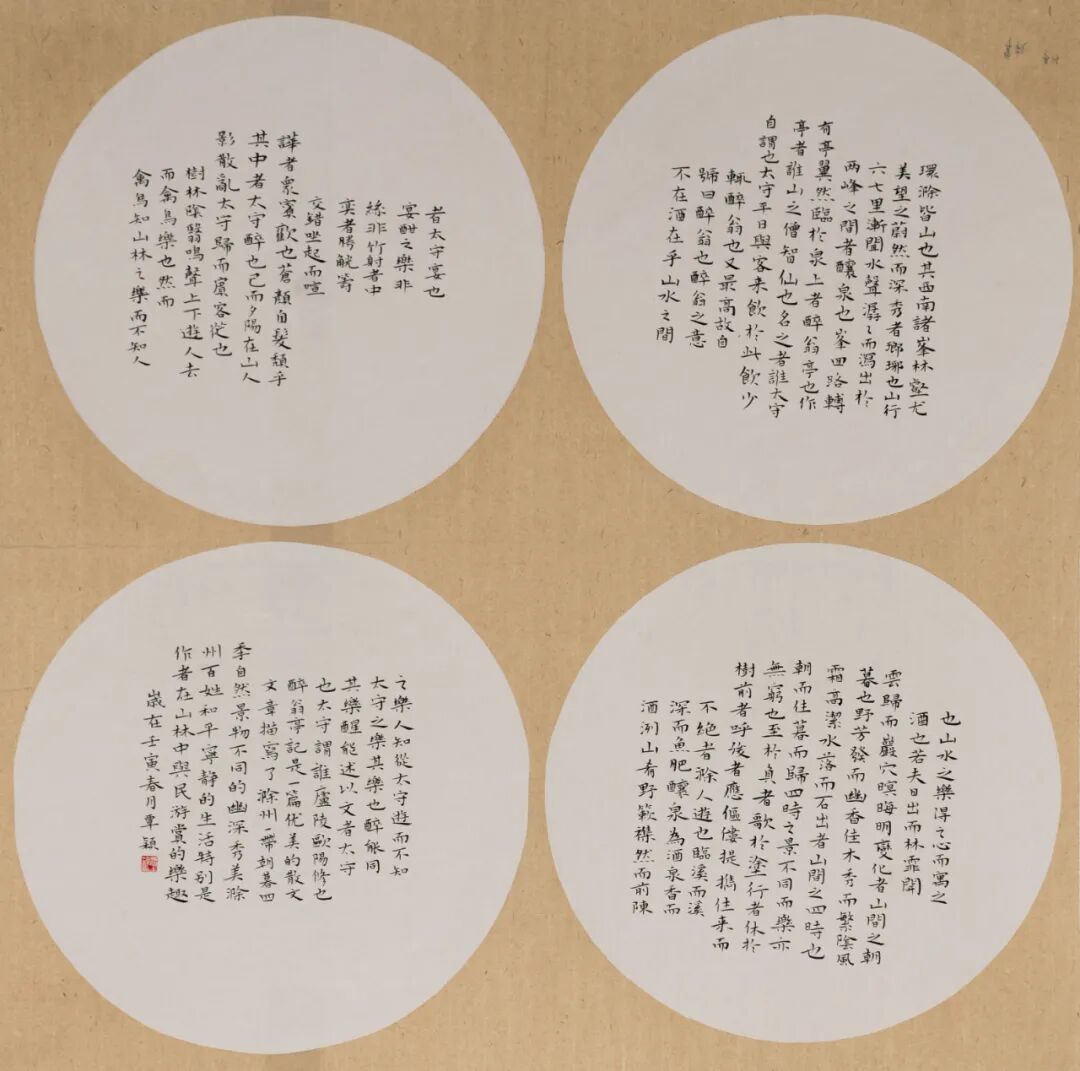 環滁皆山也其西南諸峯林壑尤
美望之蔚然而深秀者瑯琊也山行
六七里漸聞水聲潺〻而瀉出於
兩峰之間者釀泉也峯回路轉
有亭翼然臨於泉上者醉翁亭也作
亭者誰山之僧智仙也名之者誰太守
自謂也太守平日與客來飲於此飲少
輒醉翁也又最高故自
號曰醉翁也醉翁之意
不在酒在乎山水之間
也山水之樂得之心而寓之
酒也若夫日出而林霏開
雲歸而巖穴暝晦明變化者山間之朝
暮也野芳發而幽香佳木秀而繁陰風
霜高潔水落而石出者山間之四時也
朝而往暮而歸四時之景不同而樂亦
無窮也至於負者歌於塗行者休於
樹前者呼後者應傴僂提攜往來而
不絕者滁人遊也臨溪而溪
深而魚肥釀泉為酒泉香而
酒洌山肴野蔌襍然而前陳
者太守宴也
宴酣之樂非
絲非竹射者中
奕者勝觥籌
交錯坐起而喧
譁者衆賓歡也蒼顏白髮頹乎
其中者太守醉也已而夕陽在山人
影散亂太守歸而賓客從也
樹林陰翳鳴聲上下遊人去
而禽鳥樂也然而
禽鳥知山林之樂而不知人
之樂人知從太守遊而不知
太守之樂其樂也醉能同
其樂醒能述以文者太守
也太守謂誰廬陵歐陽修也
醉翁亭記是一篇优美的散文
文章描寫了滁州一帶朝暮四
季自然景物不同的幽深秀美滁
州百姓和平寧静的生活特别是
作者在山林中與民游賞的樂趣
歲在壬寅春月覃穎